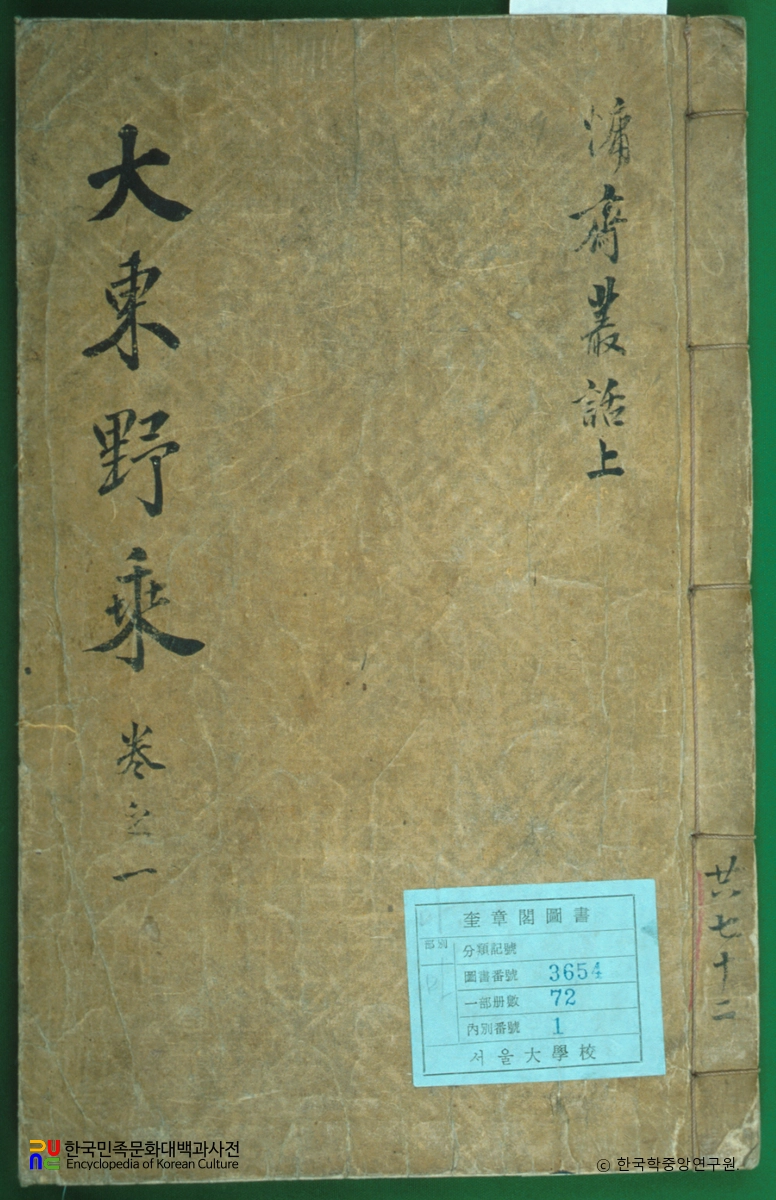 慵齋叢話上
大東野乘 卷之一
共七十二
奎章閣圖書
部別
分類記號
圖書番號 3654
一部册數 72
內別番號 1
서울大學校
한국민족문화대백과사전
Encyclopedia of Korean Culture
© 한국학중앙연구원